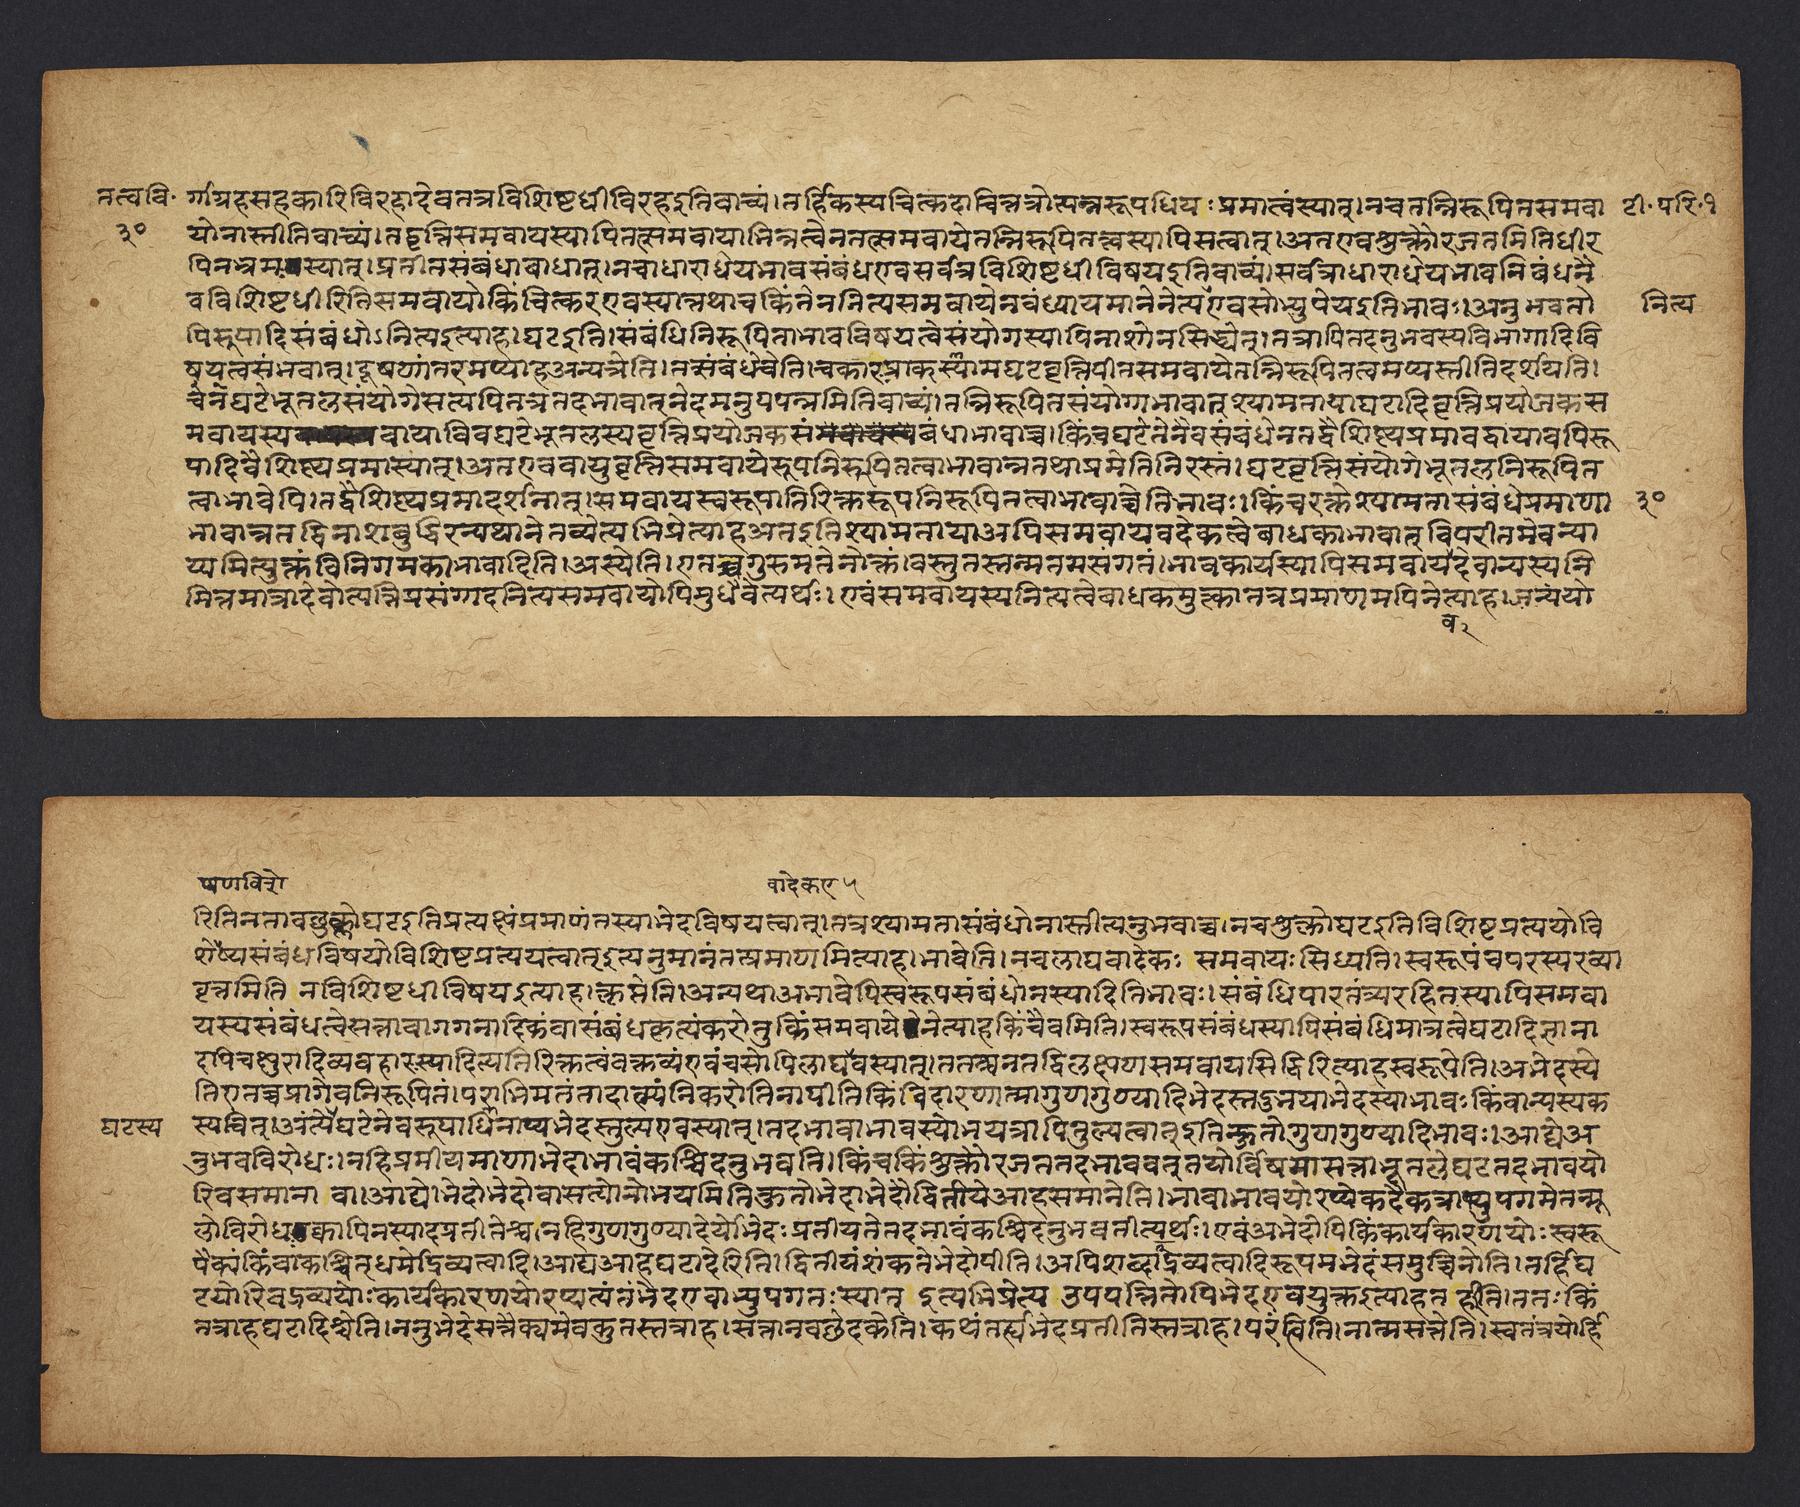 तत्ववि॰ र्गाग्रहसहकारिविरहादेवतत्रविशिष्टधीविरहइतिवाच्यं।तर्हिकस्यचित्कदाचित्तत्रोत्पन्नरूपधियः प्रमात्वंस्यात्।नचतन्निरूपितसमवा टी॰परि॰१
३० योनास्तीतिवाच्यं।तद्वृत्तिसमवायस्यापितत्समवायाभिन्नत्वेनतत्समवायेतन्निरूपितत्वस्यापिसत्वात्।अतएवशुक्तौरजतमितिधीर
पितभ्रमःस्यात्।प्रतीतसंबंधाबाधात्।नचाधाराधेयभावसंबंधएवसर्वत्रविशिष्टधीविषयइतिवाच्यं।सर्वत्राधाराधेयभावनिबंधनै
वविशिष्टधीरितिसमवायोकिंचित्करएवस्यात्तथाचकिंतेननित्यसमवायेनवंध्यायमानेनेत्यएवसोभ्युपेयइतिभावः।अनुभवतो नित्य
पिरूपादिसंबंधोऽनित्यइत्याह।घटइति।संबंधिनिरूपिताभावविषयत्वेसंयोगस्यापिनाशोनसिद्ध्येत्।तत्रापितदनुभवस्यविभागादिवि
षयत्वसंभवात्।दूषणांतरमप्याहअन्यत्रेति।तत्संबंधेचेति।चकारप्राक्श्यामघटवृत्तिपीतसमवायेतन्निरूपितत्वमप्यस्तीतिदर्शयति।
चेनघटेभूतलसंयोगेसत्यपितत्रतदभावात्नेदमनुपपन्नमितिवाच्यं।तन्निरूपितसंयोगाभावात्श्यामतायाघटादिवृत्तिप्रयोजकस
मवायस्यवायाविवघटेभूतलस्यवृत्तिप्रयोजकसंबंधाभावाच्च।किंचघटेतेनैवसंबंधेनतद्वैशिष्ट्यप्रमावद्वायावपिरू
पादिवैशिष्ट्यप्रमास्यात्।अतएववायुवृत्तिसमवायेरूपनिरूपितत्वाभावान्नतथाप्रमेतिनिरस्तं।घटवृत्तिसंयोगेभूतलनिरूपित
त्वाभावेपि।तद्वैशिष्ट्यप्रमादर्शनात्।समवायस्वरूपातिरिक्तरूपनिरूपितत्वाभावाच्चेतिभावः।किंचरक्तेश्यामतासंबंधेप्रमाणा ३०
भावान्नतद्विनाशबुद्धिरन्यथानेतव्येत्यभिप्रेत्याहअतइतिश्यामतायाअपिसमवायवदेकत्वेबाधकाभावात्विपरीतमेवन्या
य्यमित्युक्तंविनिगमकाभावादिति।अस्येति।एतच्चगुरुमतेनोक्तं।वस्तुतस्तन्मतमसंगतं।भावकार्यस्यापिसमवायदेवान्यस्यनि
मित्तमात्रादेवोत्पत्तिप्रसंगादनित्यसमवायोपिमुधैवेत्यर्थः।एवंसमवायस्यनित्यत्वेबाधकमुक्त्वातत्रप्रमाणमपिनेत्याह।अन्ययो
व२
षणविशे वादेकए५
रितिनतावच्छुक्लोघटइतिप्रत्यक्षंप्रमाणंतस्याभेदविषयत्वात्।तत्रश्यामतासंबंधोनास्तीत्यनुभवाच्च।नचशुक्लोघटइतिविशिष्टप्रत्ययोवि
शेष्यसंबंधविषयोविशिष्टप्रत्ययत्वात्इत्यनुमानंतत्प्रमाणमित्याह।भावेति।नचलाघवादेकः समवायःसिध्यति।स्वरूपंचपरस्परव्या
वृत्तमिति नविशिष्टधीविषयइत्याह।कॢप्तेति।अन्यथाअभावेपिस्वरूपसंबंधोनस्यादितिभावः।संबंधिपारतंत्र्यरहितस्यापिसमवा
यस्यसंबंधत्वेसत्तावागगनादिकंवासंबंधकृत्यंकरोतुकिंसमवायेनेत्याहकिंचैवमिति।स्वरूपसंबंधस्यापिसंबंधिमात्रत्वेघटादिज्ञाना
दपिचक्षुरादिव्यवहारःस्यादित्यतिरिक्तत्वंवक्तव्यंएवंचसोपिलाघवस्यात्।ततश्चनतद्विलक्षणसमवायसिद्धिरित्याहस्वरूपेति।अभेदस्ये
तिएतच्चप्रागेवनिरूपितं।पराभिमतंतादात्म्यंनिकरोतिनापीतिकिंविदारणात्मागुणगुण्यादिभेदस्तदुभयाभेदस्याभावःकिंवान्यस्यक
घटस्य स्यचित्।अंत्येघटेनेवरूपाधिनाप्यभेदस्तुल्यएवस्यात्।तदभावाभावस्योभयत्रापितुल्यत्वात्इतिकुतोगुणगुण्यादिभावः।आद्येअ
नुभवविरोधः।नहिप्रमीयमाणाभेदाभावंकश्चिदनुभवति।किंचकिंशुक्तौरजततदभाववत्तयोर्विषमासत्ताभूतलेघटतदभावयो
रिवसमाना वा।आद्ये।भेदोभेदोवासत्योनोभयमितिकुतोभेदाभेदौद्वितीयेआहसमानेति।भावाभावयोरप्येकदैकत्राभ्युपगमेतन्मू
लोविरोधःक्वापिनस्यादप्रतीतेश्च।नहिगुणगुण्यादेर्योभेदःप्रतीयतेतदभावंकश्चिदनुभवतीत्यर्थः।एवंअभेदोपिकिंकार्यकारणयोःस्वरू
पैक्यंकिंवाकश्चित्धर्मोद्रव्यत्वादि।आद्यआहघटादेरिति।द्वितीयंशंकतेभेदोपीति।अपिशब्दाद्रव्यत्वादिरूपमभेदंसमुच्चिनोति।तर्हिघ
टयोरिवद्रव्ययोःकार्यकारणयोरप्यत्यंतंभेदएवाभ्युपगतःस्यात् इत्यभिप्रेत्य उपपत्तितोपिभेदएवयुक्तइत्याहन हीति।ततःकिं
तत्राहघटादिश्चेति।ननुभेदंसत्तैक्यमेवकुतस्तत्राह।सत्तानवच्छेदकेति।कथंतर्ह्यभेदप्रतीतिस्तत्राह।परंत्विति।नात्मसत्तेति।स्वतंत्रयोर्हि